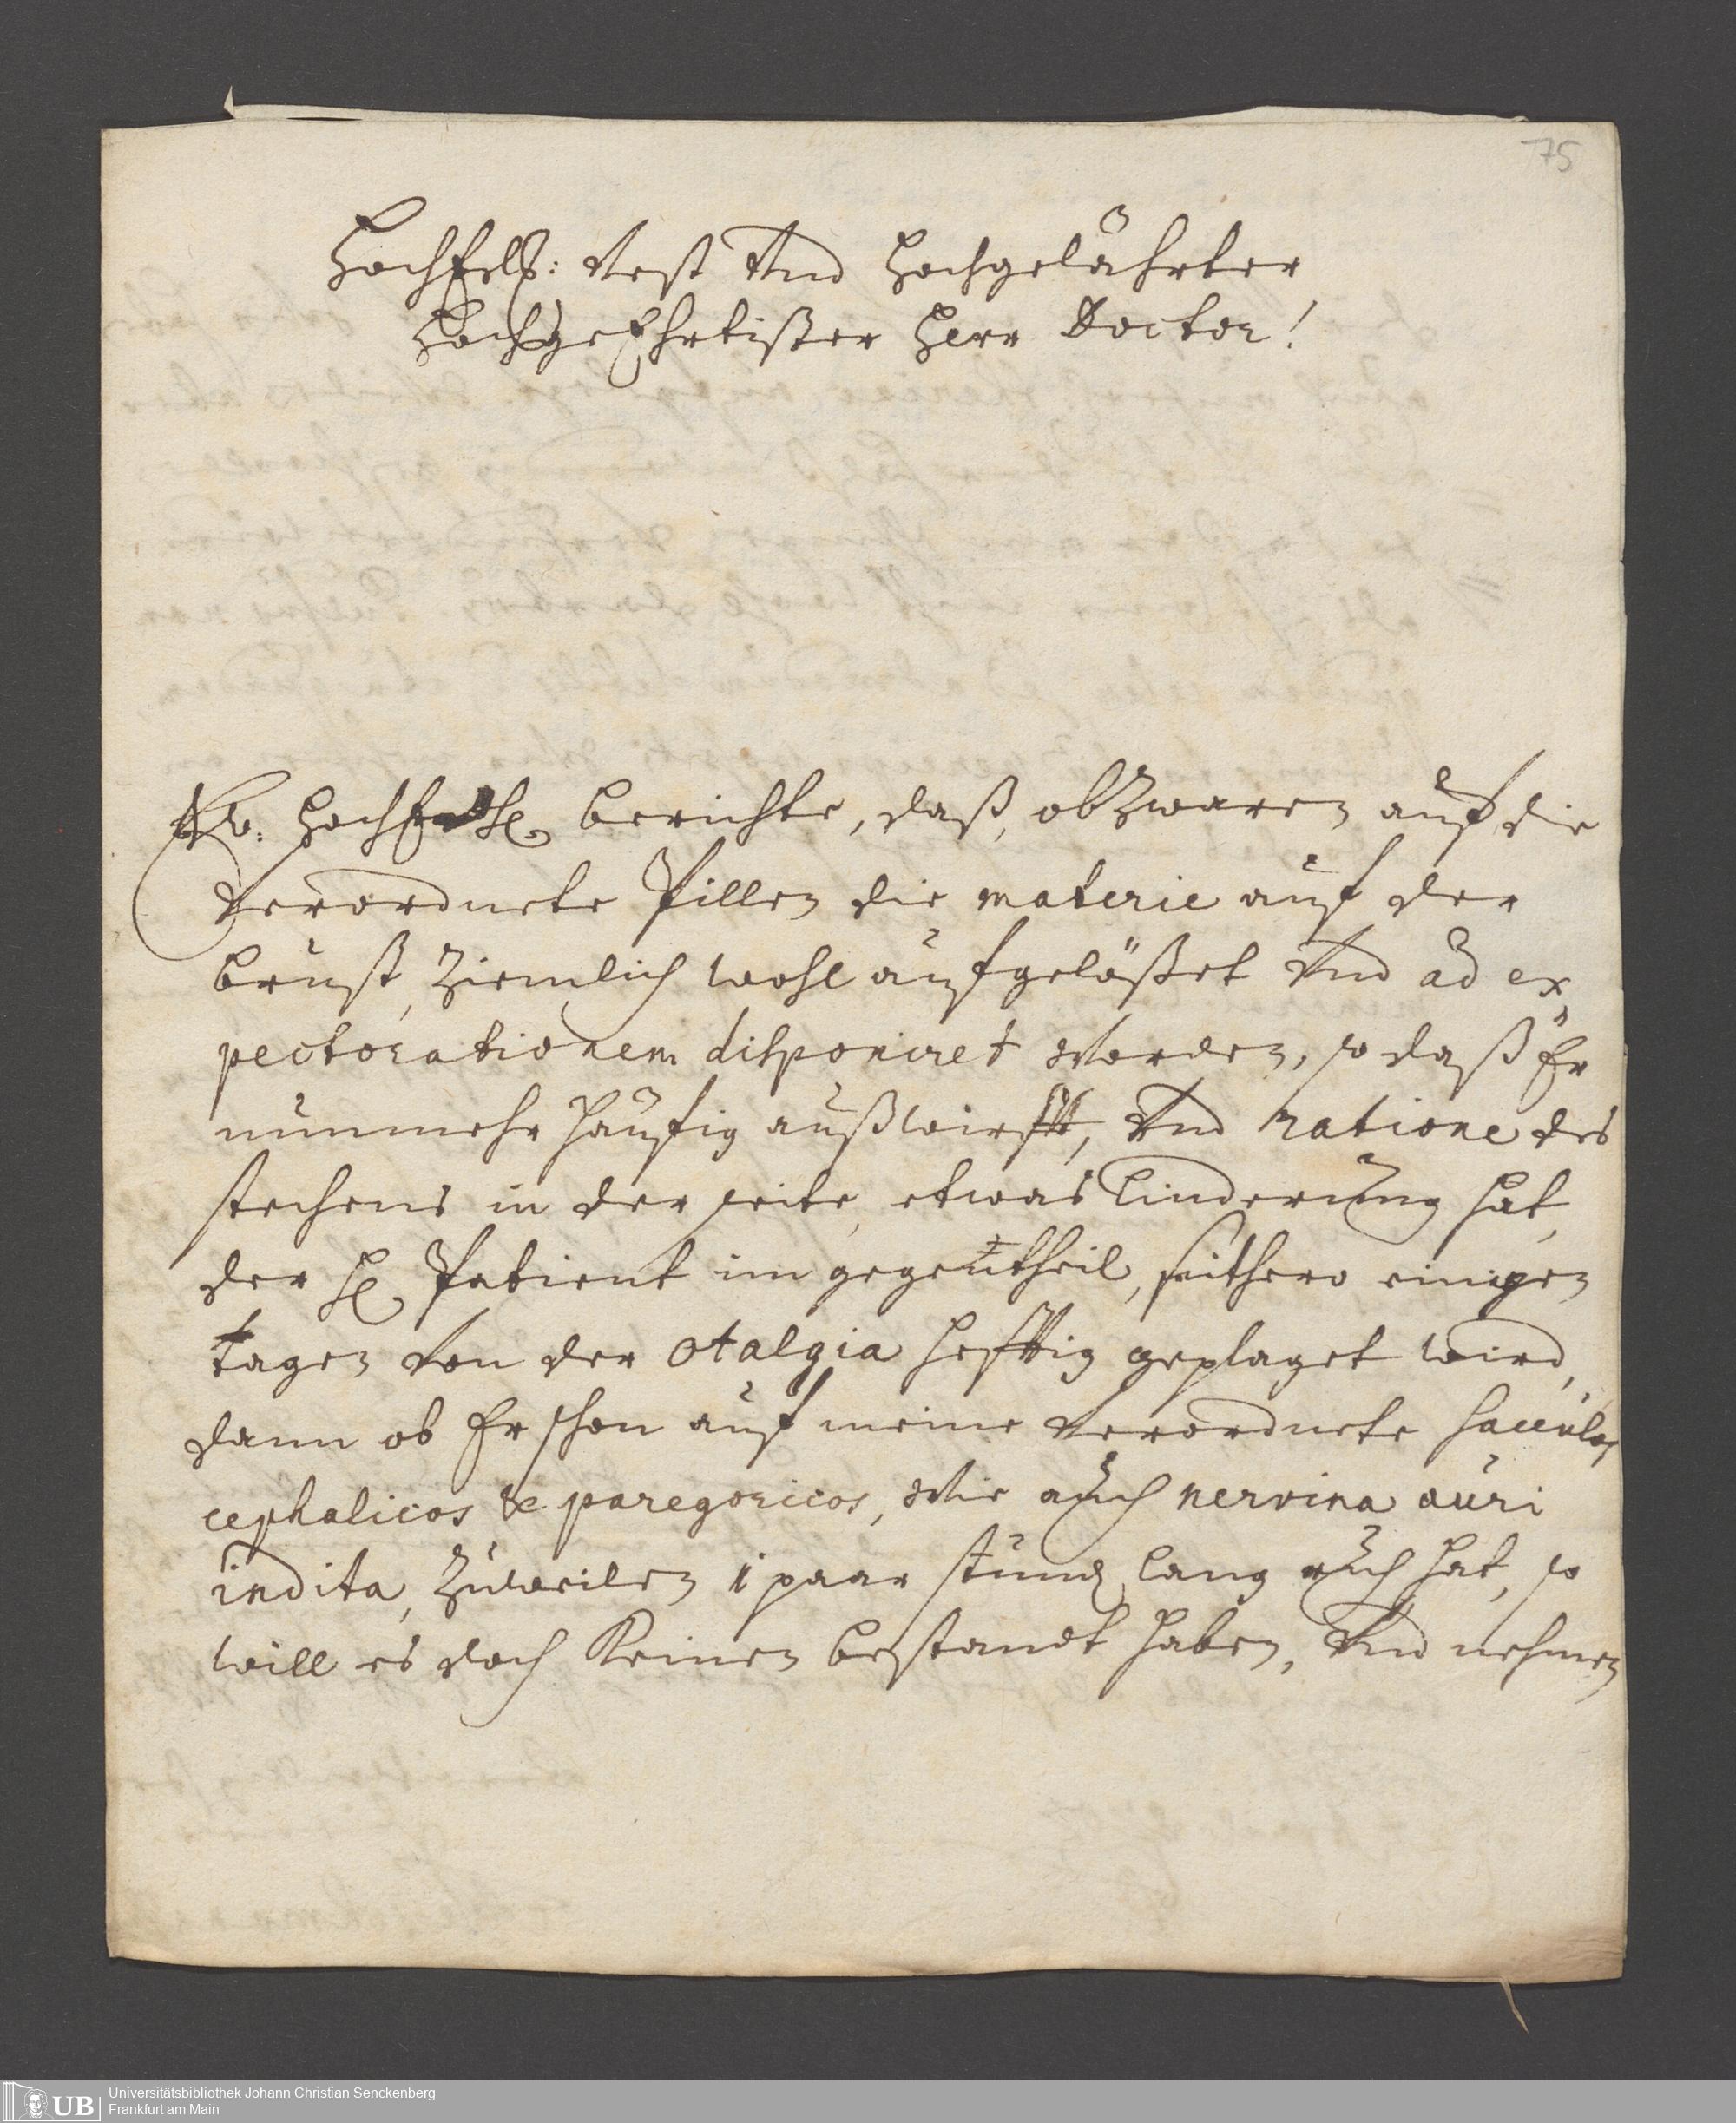 75
HochEdl: Vest Vnd Hochgelährter
HochgeEhrtister Herr Doctor!
Ew: berichte, daß, obzwaren auf die
Verordnete Pillen die materie auf der
brust, ziemlich wohl aufgelößet Vnd ad ex
pectorationem disponiret worden, so daß Er
nunmehr häufig außwirfft, Vnd ratione des
stechens in der seite, etwas linderung hat,
der H. Patient im gegentheil, seithero einigen
tagen Von der otalgia hefftig geplaget wird,
dann ob Er schon auf meine Verordnete sacculos
cephalicos & paregoricos, wie auch nervina auri
indita, zuweilen 1 paar stund lang ruh hat, so
will es doch Keinen bestandt haben, Vnd nehmen
UB Universitätsbibliothek Johann Christian Senckenberg
Frankfurt am Main